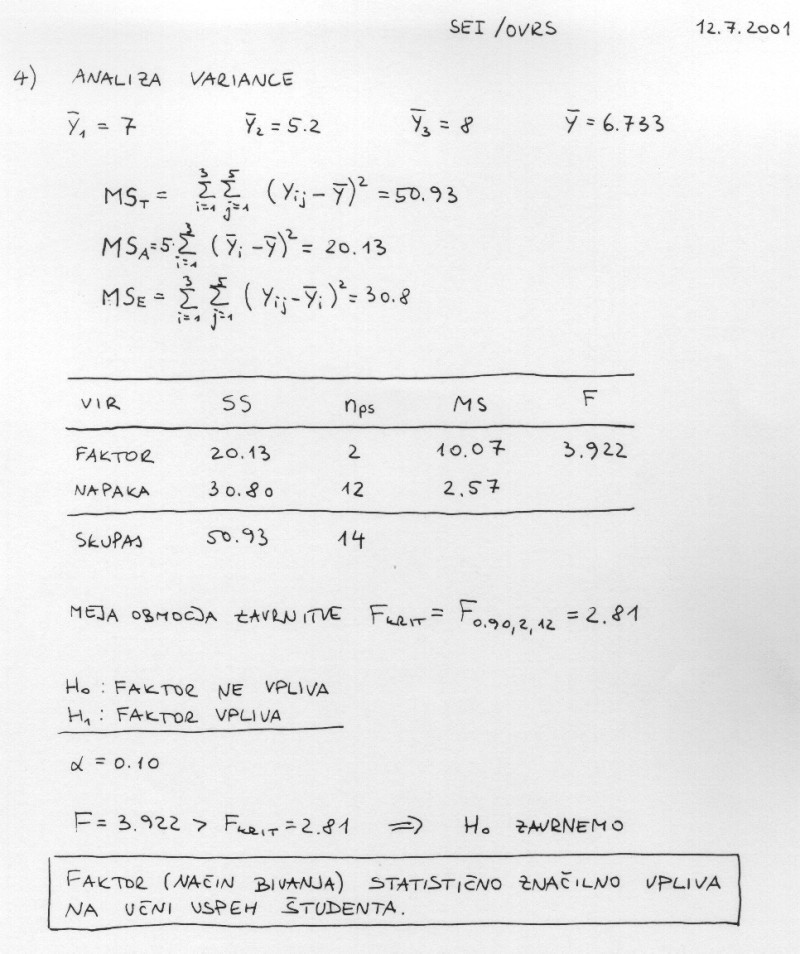 SEI/OVRS 12.7.2001
4) ANALIZA VARIANCE
Ȳ₁ = 7 Ȳ₂ = 5.2 Ȳ₃ = 8 Ȳ = 6.733
MS_T = ∑_{i=1}^{3} ∑_{j=1}^{5} (Y_{ij} − Ȳ)² = 50.93
MS_A = 5·∑_{i=1}^{3} (Ȳ_i − Ȳ)² = 20.13
MS_E = ∑_{i=1}^{3} ∑_{j=1}^{5} (Y_{ij} − Ȳ_i)² = 30.8
VIR SS n_{ps} MS F
FAKTOR 20.13 2 10.07 3.922
NAPAKA 30.80 12 2.57
SKUPAJ 50.93 14
MEJA OBMOČJA ZAVRNITVE F_{KRIT} = F_{0.90, 2, 12} = 2.81
H₀ : FAKTOR NE VPLIVA
H₁ : FAKTOR VPLIVA
α = 0.10
F = 3.922 > F_{KRIT} = 2.81 ⇒ H₀ ZAVRNEMO
FAKTOR (NAČIN BIVANJA) STATISTIČNO ZNAČILNO VPLIVA
NA UČNI USPEH ŠTUDENTA.